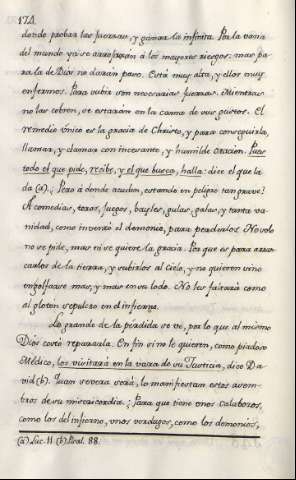 174.
donde probar las fuerzas, y gomar la infinita. Por la vana
del mundo ya se arrojaran á los mayores riesgos: mas pa-
ra la de Dios no daran paso. Está muy alta, y ellos muy
enfermos. Para subir son necesarias fuerzas. Mientras
no las cobren, se estarán en la cama de sus gustos. El
remedio unico es la gracia de Christo, y para conseguirla,
llamar, y clamar con incesante, y humilde oracion. Pues
todo el que pide, recibe, y el que busca, halla: dice el que la
da (a). ¿Pero á donde acuden, estando en peligro tan grave?
A comedias, toros, juegos, bayles, gulas, galas, y tanta va-
nidad, como inventó el demonio, para perderlos. No solo
no se pide, mas ni se quiere la gracia. Por que es para arran-
carlos de la tierra, y subirlos al cielo, y no quieren sino
engolfarse mas, y mas en su lodo. No les faltará como
al gloton sepulcro en el infierno.
Lo grande de la pérdida se ve, por lo que al mismo
Dios costó repararla. En fin si no le quieren, como piadoso
Médico, los visitará en la vara de su Justicia, dice Da-
vid (b). Quan severa será, lo manifiestan estos asom-
bros de su misericordia. ¿Para que tiene unos calabozos,
como los del infierno, unos verdugos, como los demonios,
(a) Luc. 11 (b) Psal. 88.